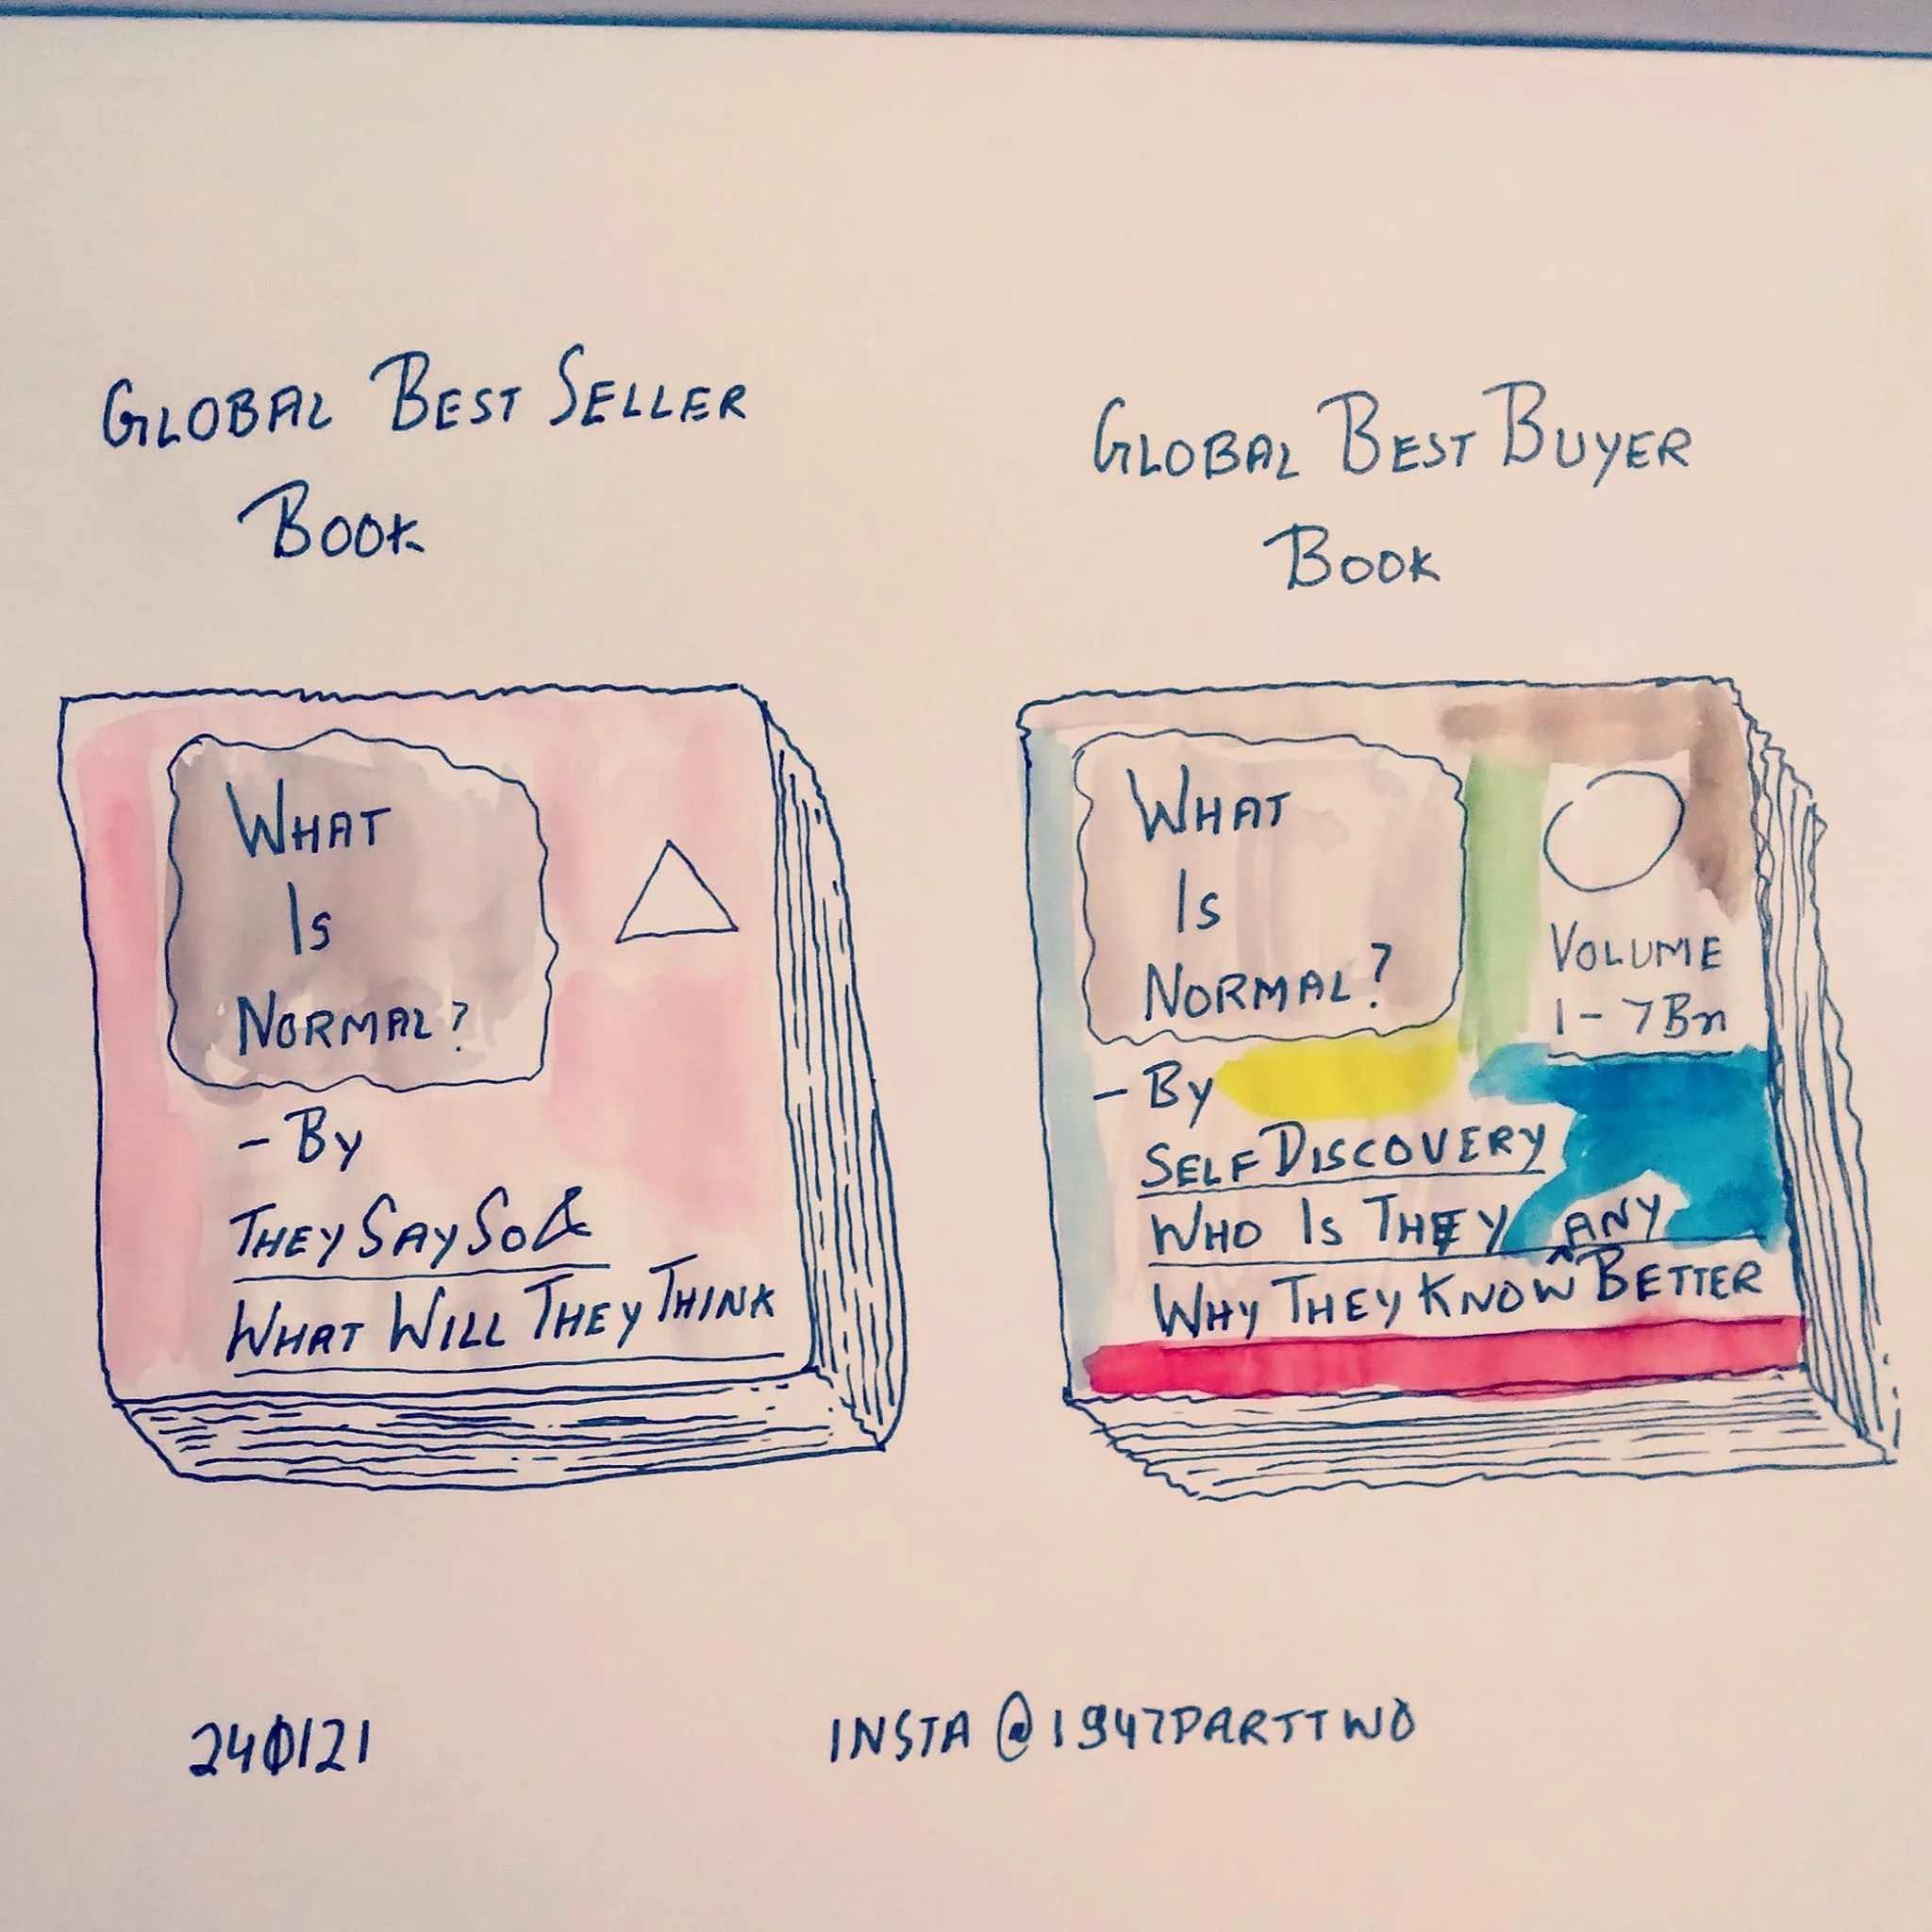 GLOBAL BEST SELLER
BOOK
WHAT
IS
NORMAL?
- BY
THEY SAY SO &
WHAT WILL THEY THINK
GLOBAL BEST BUYER
BOOK
WHAT
IS
NORMAL?
VOLUME
1 - 7 Bn
- BY
SELF DISCOVERY
WHO IS THEY
WHY THEY KNOW ^ANY BETTER
240121
INSTA @1947PARTTWO